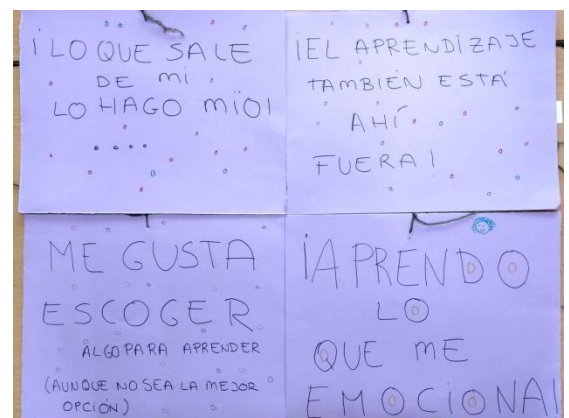 ¡LO QUE SALE
DE mi
LO HAGO MÍO!
....
¡EL APRENDIZAJE
TAMBIÉN ESTÁ
AHÍ
FUERA!
ME GUSTA
ESCOGER
ALGO PARA APRENDER
(AUNQUE NO SEA LA MEJOR
OPCIÓN)
¡APRENDO
LO
QUE ME
EMOCIONA!